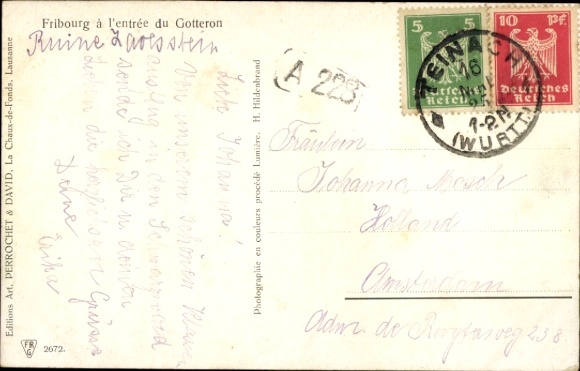 Fribourg à l'entrée du Gotteron
Ruine Zavelstein
Liebe Johanna!
Von unserem schönen
in den Schwarzwald
sende ich Dir u. deinen
die herzlichsten Grüsse
Deine
Erika
Editions Art. PERROCHET & DAVID, La Chaux-de-Fonds, Lausanne
FR
G
2672.
Photographie en couleurs procédé Lumière. H. Hildenbrand
A 22B
5 5
Deutsches
Reich
10 Pf.
Deutsches
Reich
TEINACH
16
25
1-2 N
(WÜRTT.)
Fräulein
Johanna Mosch
Holland
Amsterdam
Adm. de Ruytersweg 238